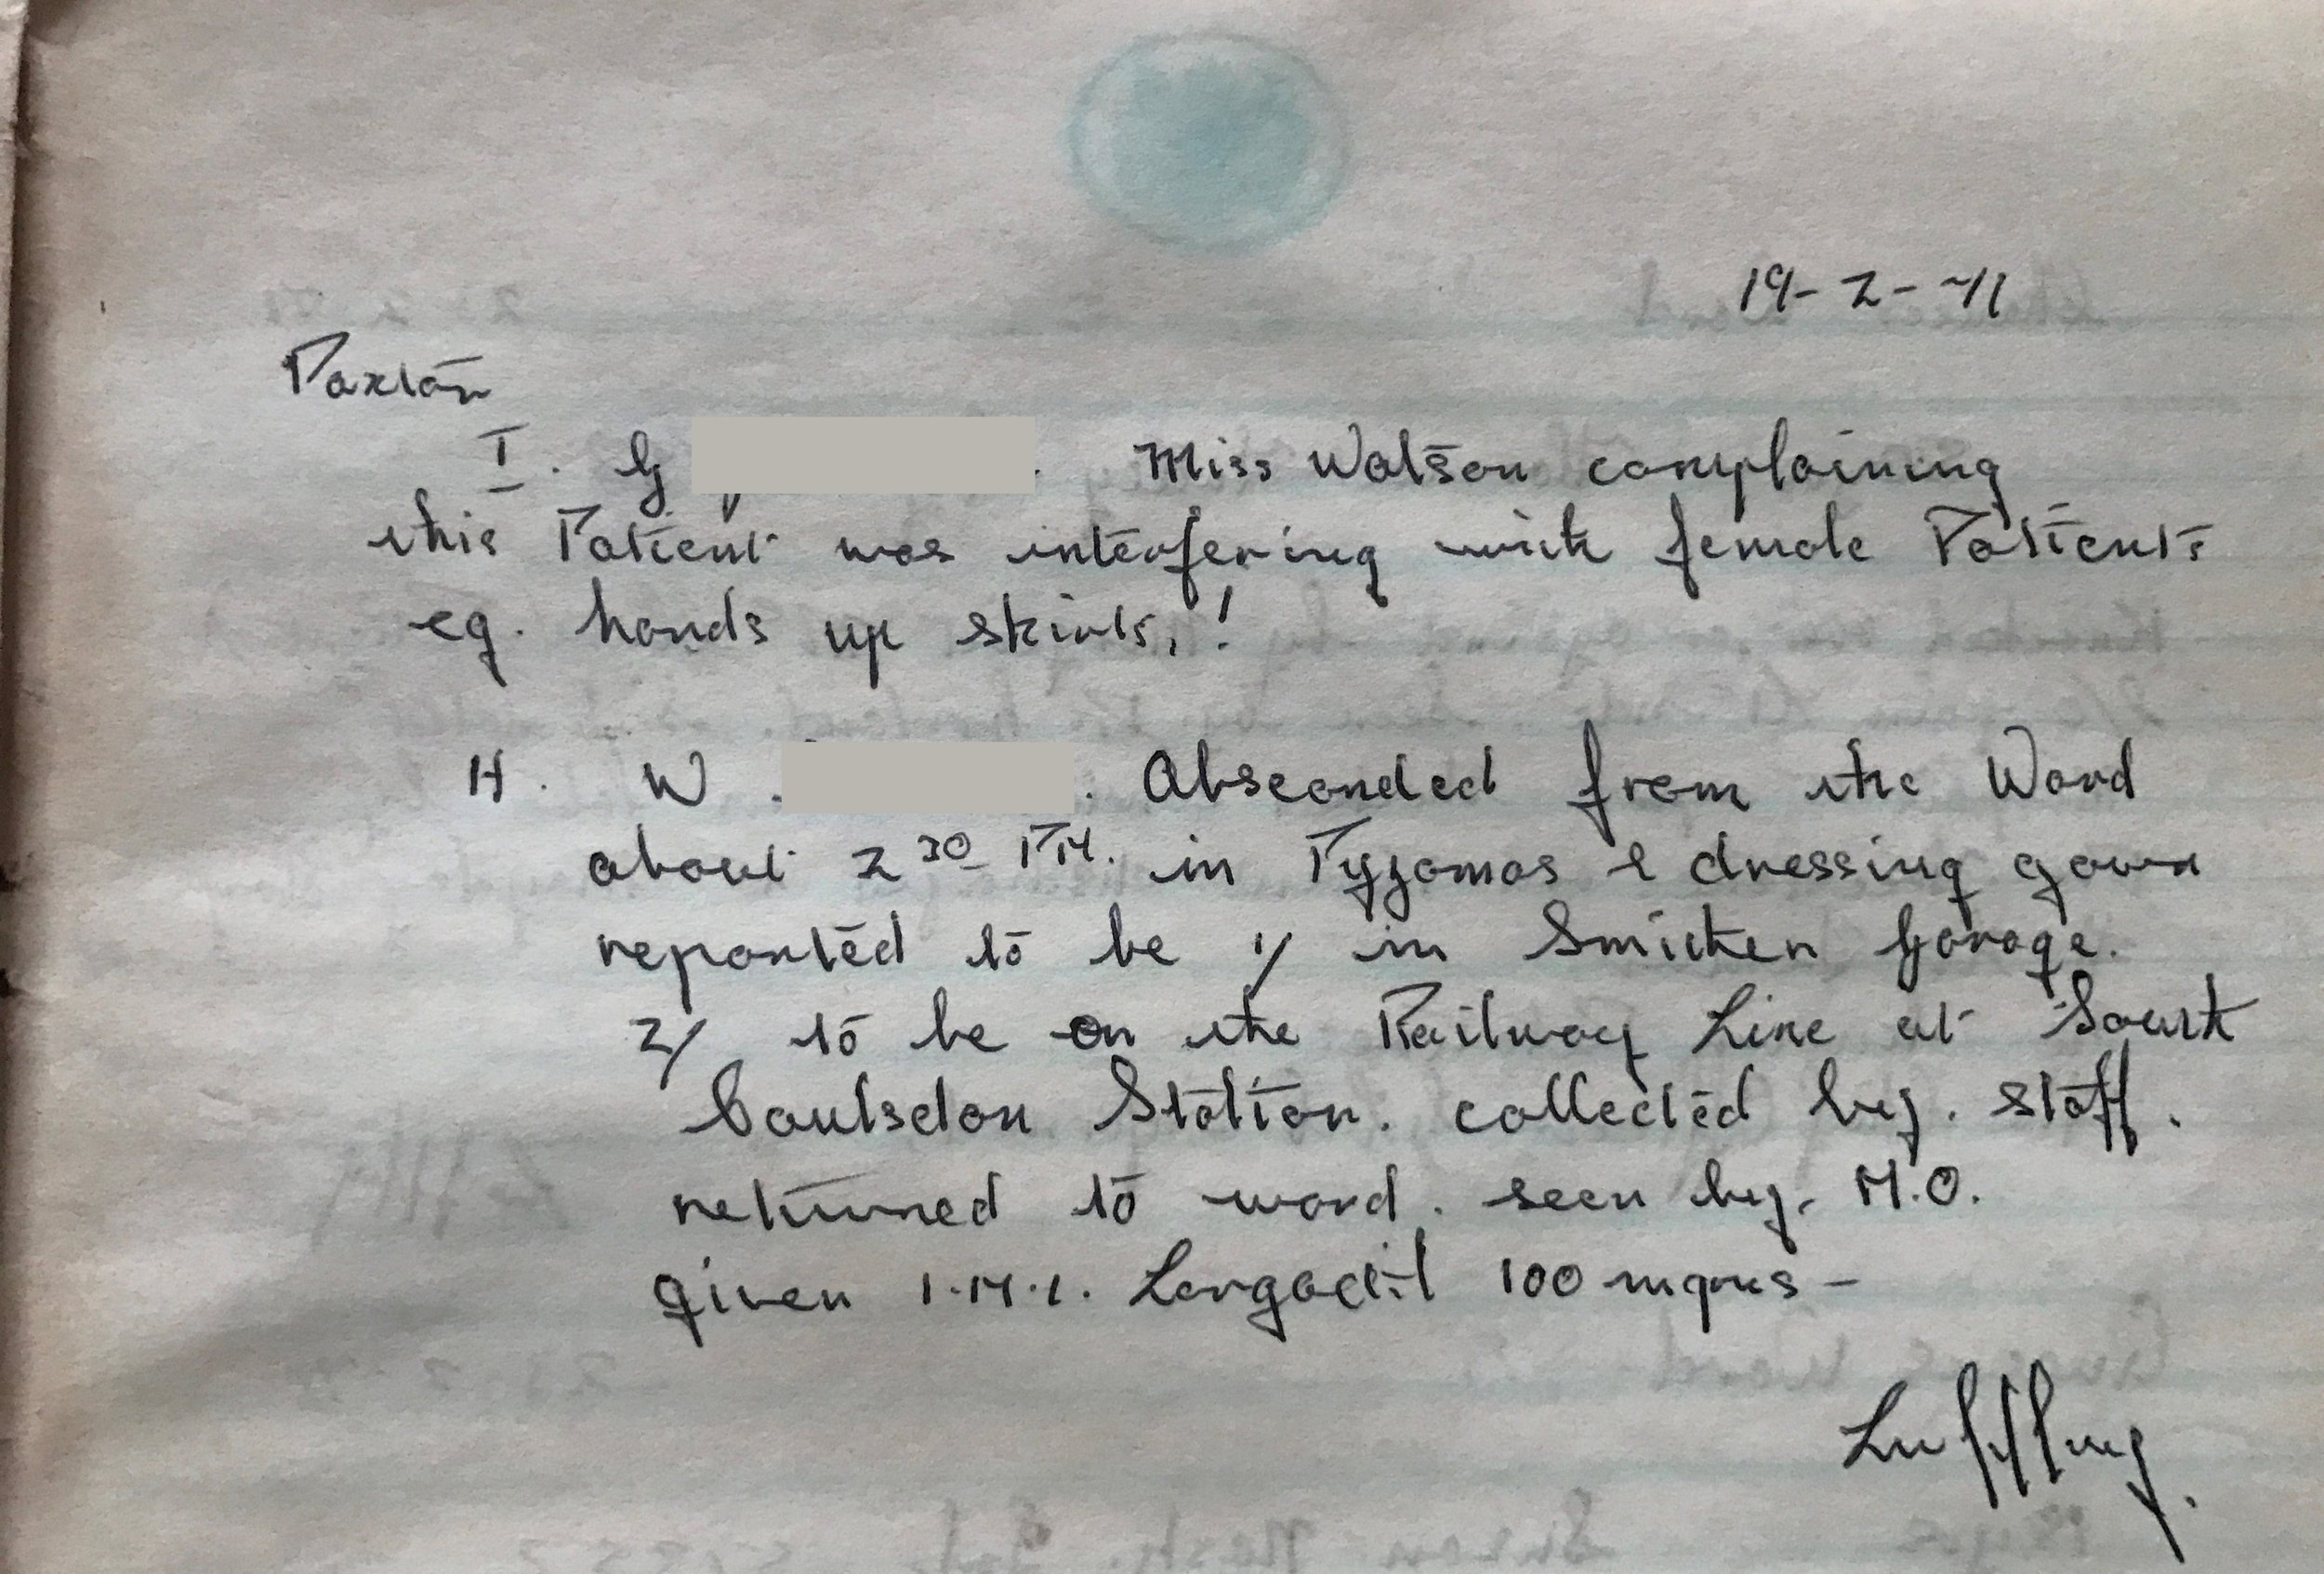 19-2-71
Paxton
I. G Miss Watson complaining
this Patient was interfering with female Patients
eg. hands up skirts, !
H. W . Absconded from the Ward
about 2 30 PM. in Pyjamas & dressing gown
reported to be 1/ in Smitken Garage.
2/ to be on the Railway Line at South
Coulsdon Station. collected by. staff.
returned to ward. seen by. M.O.
given I.M.I. Largactil 100 mgms -